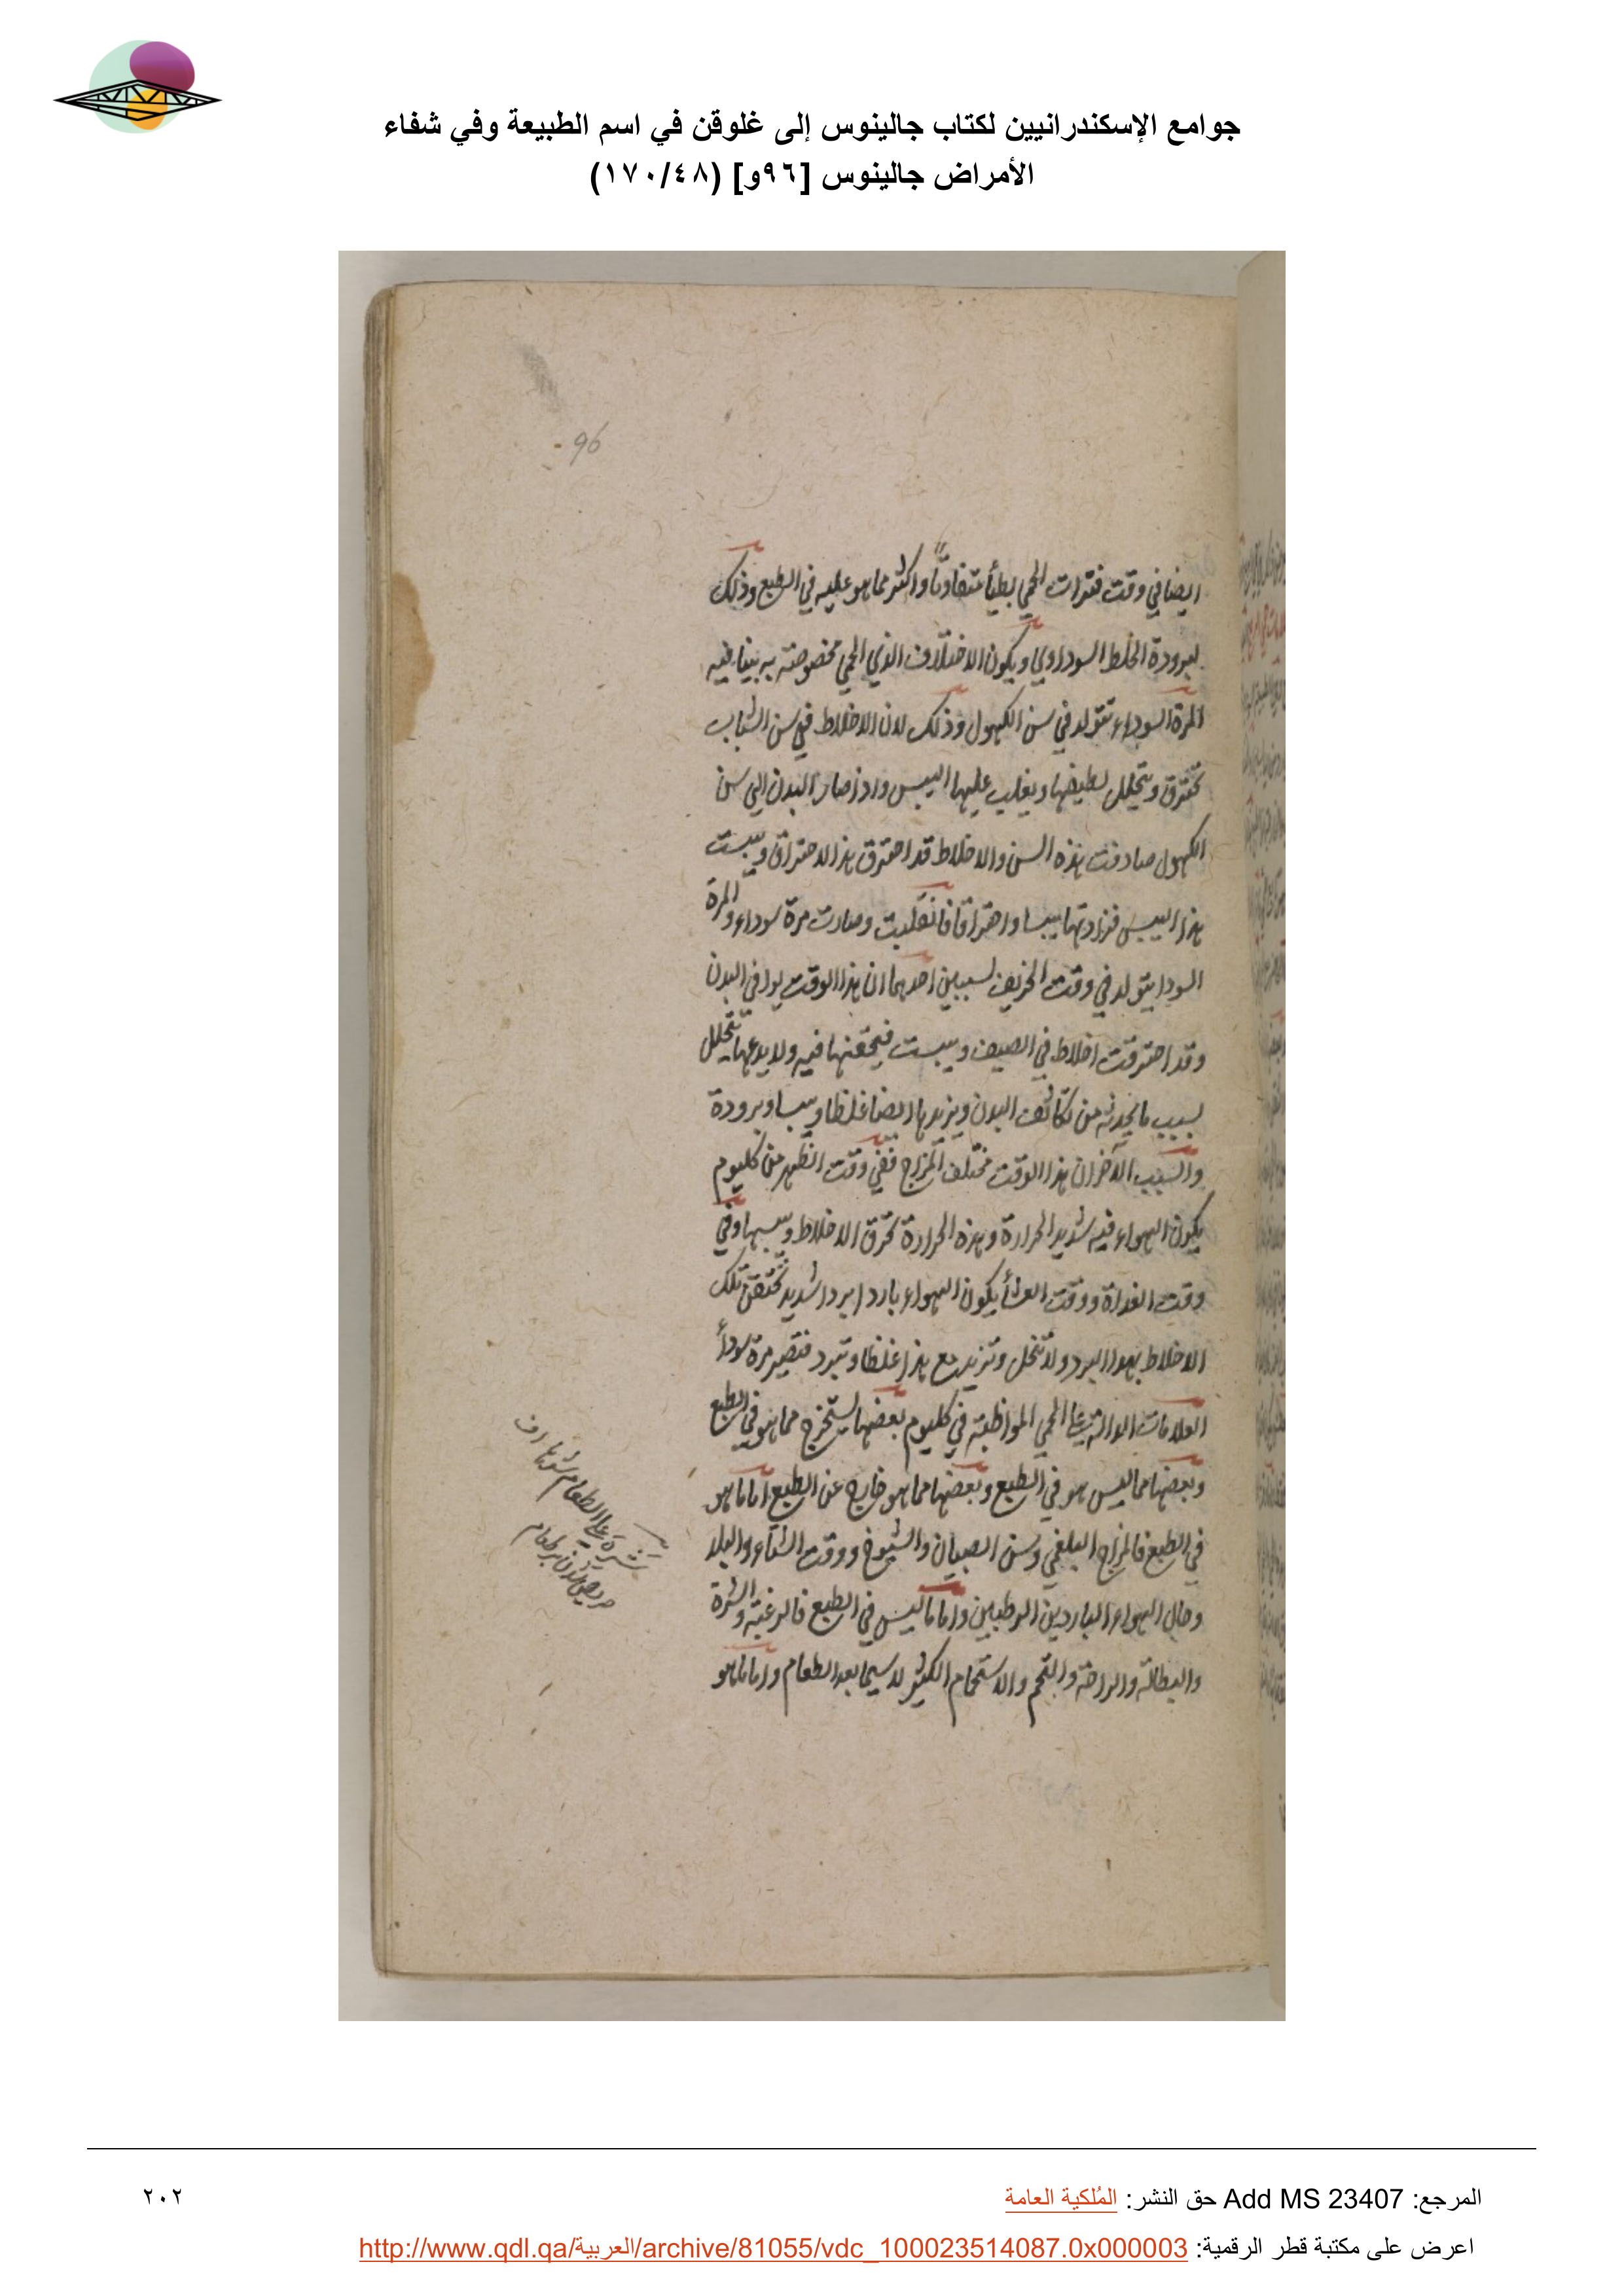 جوامع الإسكندرانيين لكتاب جالينوس إلى غلوقن في اسم الطبيعة وفي شفاء
الأمراض جالينوس [٩٦و] (١٧٠/٤٨)
96
ايضا في وقت فترات الحمى بطيأ متفاوتاً واكثر مما هو عليه في الطبع وذلك
لبرودة الخلط السوداوي ويكون الاختلاف الذي الحمى مخصوصة به بينا فيه
المرة السوداء تتولد في سن الكهول وذلك لان الاخلاط في سن الشباب
تحترق ويتحلل لطيفها ويغلب عليها اليبس واذ صار البدن الى سن
الكهول صادفت هذه السن والاخلاط قد احترق هذا الاحتراق ويبست
هذا اليبس فزادتها يبسا واحتراقا فانقلبت وصارت مرة سوداء والمرة
السودا يتولد في وقت الخريف لسببين احدهما ان هذا الوقت يوافي البدن
وقد احترقت اخلاط في الصيف ويبست فيحقنها فيه ولا يدعها يتحلل
بسبب ما يحدثه من تكاثف البدن ويزيدها ايضا غلظا ويبسا وبرودة
والسبب الآخر ان هذا الوقت مختلف المزاج ففي وقت الظهر من كل يوم
يكون الهواء فيه شديد الحرارة وهذه الحرارة تحرق الاخلاط ويبسها وفي
وقت الغداة ووقت العشأ يكون الهواء باردا بردا شديد تحتقن تلك
الاخلاط بهذا البرد ولا تنحل وتزيد مع هذا غلظا وتبرد فتصير مرة سودأ
العلامات الدالة على الحمى المواظبة في كل يوم بعضها يستخرج مما هو في الطبع
وبعضها مما ليس هو في الطبع وبعضها مما هو خارج عن الطبع اما ما هو
في الطبع فالمزاج البلغمي وسن الصبيان والشيوخ ووقت الشتاء والبلد
وحال الهواء الباردين الرطبين واما ما ليس في الطبع فالرغبة والشرة
والبطالة والراحة والتخم والاستحمام الكثير لا سيما بعد الطعام واما ما هو
شره على الطعام
المرجع: Add MS 23407 حق النشر: المُلكية العامة
٢٠٢
اعرض على مكتبة قطر الرقمية: http://www.qdl.qa/العربية/archive/81055/vdc_100023514087.0x000003